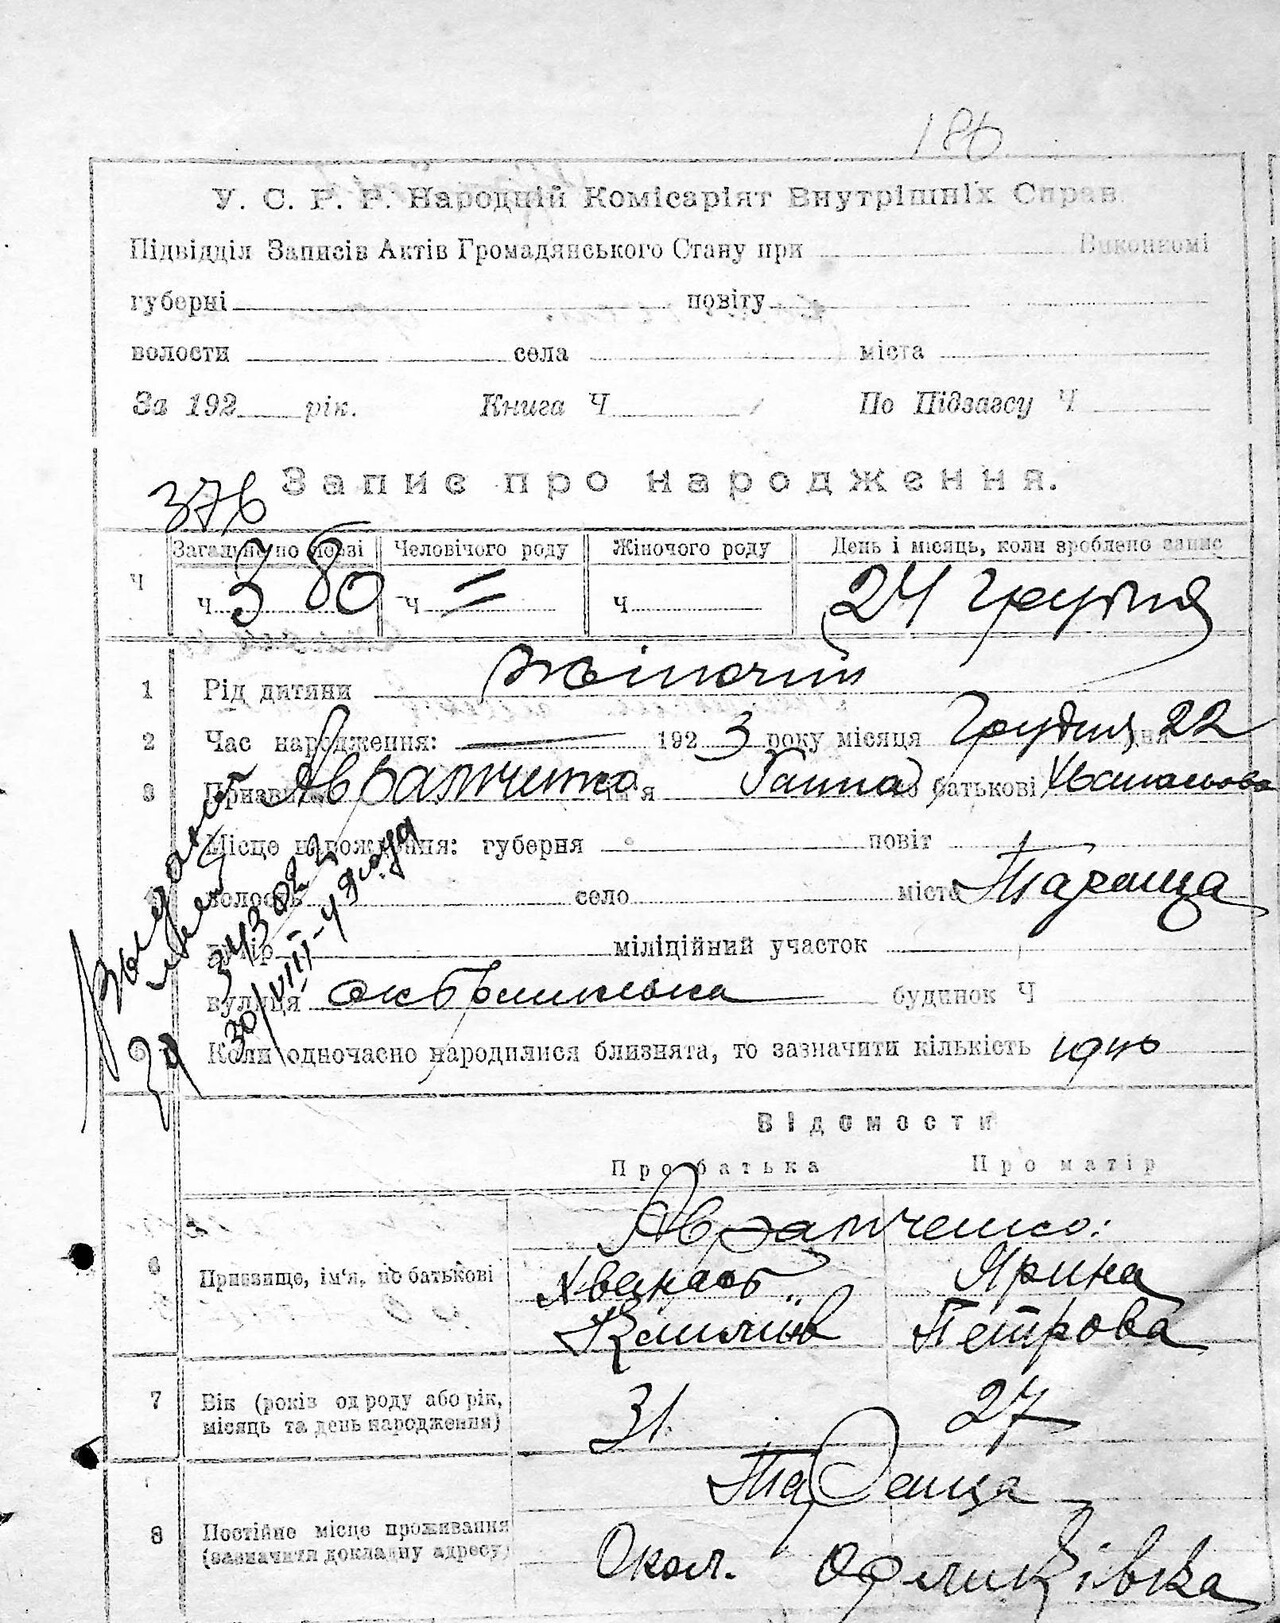 186
У. С. Р. Р. Народній Комісаріят Внутрішніх Справ.
Підвідділ Записів Актів Громадянського Стану при Виконкомі
губерні повіту
волости села міста
За 192 рік. Книга Ч По Підзагсу Ч
376
Запис про народження.
Ч Загальне по книзі Человічого роду Жіночого роду День і місяць, коли зроблено запис
ч 380 ч = ч 24 Грудня
1 Рід дитяни жіночий
2 Час народження: 1923 року місяця Грудня дня 22
3 Призвище Аврамченко ім'я Ганна по батькові Хванасьова
Місце народження: губерня повіт
4 волость село місто Тараща
міліційний участок
вулиця будинок Ч
5 Коли одночасно народилися близнята, то зазначити кількість
343022
30/VIII-
Відомости
Про батька Про матір
Аврамченко:
6 Призвище, ім'я, по батькові Хванась Ярина
Петрова
7 Вік (років од роду або рік, 31. 27
місяць та день народження)
Тараща
8 Постійне місце проживання
(зазначити докладну адресу) Окол.